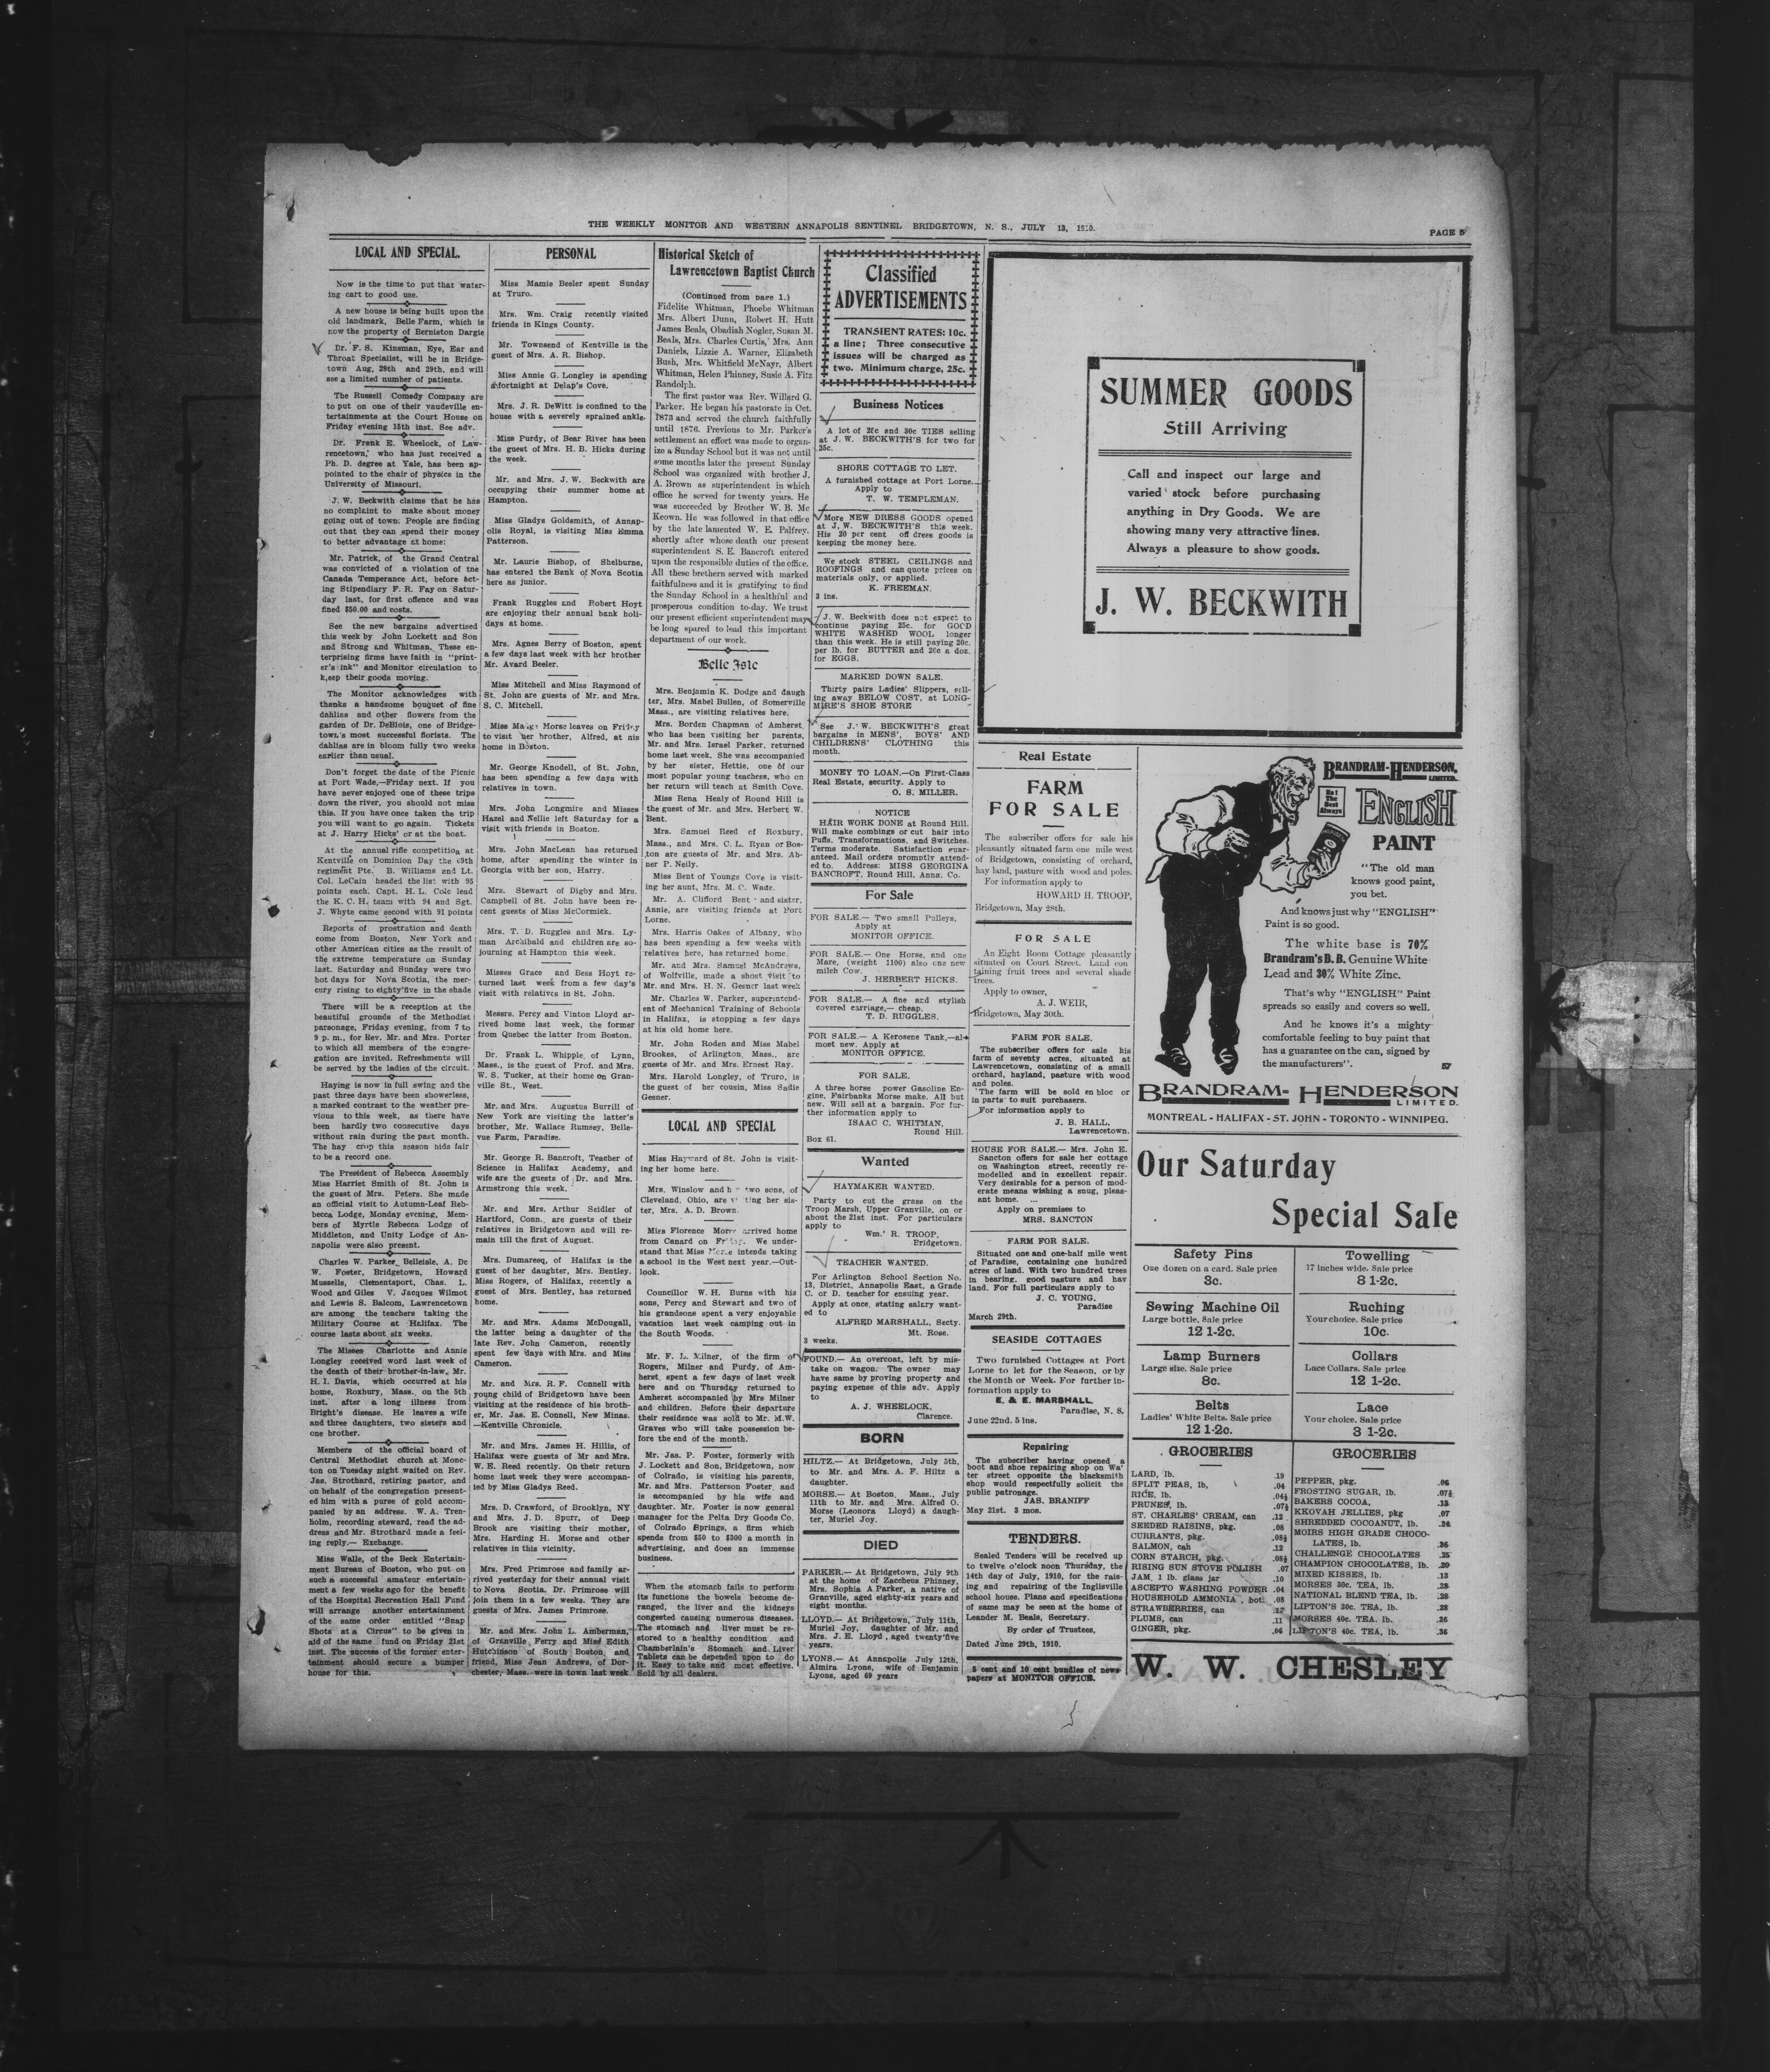 THE WEEKLY MONITOR AND WESTERN ANNAPOLIS SENTINEL BRIDGETOWN, N. S., JULY 13, 1910.
PAGE 5
LOCAL AND SPECIAL.
Now is the time to put that water-
ing cart to good use.
A new house is being built upon the
old landmark, Belle Farm, which is
now the property of Berniston Dargie
Dr. F. S. Kinsman, Eye, Ear and
Throat Specialist, will be in Bridge-
town Aug, 28th and 29th, and will
see a limited number of patients.
The Russell Comedy Company are
to put on one of their vaudeville en-
tertainments at the Court House on
Friday evening 15th inst. See adv.
Dr. Frank E. Wheelock, of Law-
rencetown, who has just received a
Ph. D. degree at Yale, has been ap-
pointed to the chair of physics in the
University of Missouri.
J. W. Beckwith claims that he has
no complaint to make about money
going out of town. People are finding
out that they can spend their money
to better advantage at home.
Mr. Patrick, of the Grand Central
was convicted of a violation of the
Canada Temperance Act, before Act-
ing Stipendiary F. R. Fay on Satur-
day last, for first offence and was
fined $50.00 and costs.
See the new bargains advertised
this week by John Lockett and Son
and Strong and Whitman. These en-
terprising firms have faith in "print-
er's ink" and Monitor circulation to
keep their goods moving.
The Monitor acknowledges with
thanks a handsome bouquet of fine
dahlias and other flowers from the
garden of Dr. DeBlois, one of Bridge-
town's most successful florists. The
dahlias are in bloom fully two weeks
earlier than usual.
Don't forget the date of the Picnic
at Port Wade,—Friday next. If you
have never enjoyed one of these trips
down the river, you should not miss
this. If you have once taken the trip
you will want to go again. Tickets
at J. Harry Hicks' or at the boat.
At the annual rifle competition at
Kentville on Dominion Day the 69th
regiment Pte. B. Williams and Lt.
Col. LeCain headed the list with 95
points each. Capt. H. L. Cole lead
the K. C. H. team with 94 and Sgt.
J. Whyte came second with 91 points
Reports of prostration and death
come from Boston, New York and
other American cities as the result of
the extreme temperature on Sunday
last. Saturday and Sunday were two
hot days for Nova Scotia, the mer-
cury rising to eighty'five in the shade
There will be a reception at the
beautiful grounds of the Methodist
parsonage, Friday evening, from 7 to
9 p. m., for Rev. Mr. and Mrs. Porter
to which all members of the congre-
gation are invited. Refreshments will
be served by the ladies of the circuit.
Haying is now in full swing and the
past three days have been showerless,
a marked contrast to the weather pre-
vious to this week, as there have
been hardly two consecutive days
without rain during the past month.
The hay crop this season bids fair
to be a record one.
The President of Rebecca Assembly
Miss Harriet Smith of St. John is
the guest of Mrs. Peters. She made
an official visit to Autumn-Leaf Reb-
becca Lodge, Monday evening, Mem-
bers of Myrtle Rebecca Lodge of
Middleton, and Unity Lodge of An-
napolis were also present.
Charles W. Parker, Belleisle, A. De
W. Foster, Bridgetown, Howard
Mussells, Clementsport, Chas. L.
Wood and Giles V. Jacques Wilmot
and Lewis S. Balcom, Lawrencetown
are among the teachers taking the
Military Course at Halifax. The
course lasts about six weeks.
The Misses Charlotte and Annie
Longley received word last week of
the death of their brother-in-law, Mr.
H. I. Davis, which occurred at his
home, Roxbury, Mass., on the 5th
inst. after a long illness from
Bright's disease. He leaves a wife
and three daughters, two sisters and
one brother.
Members of the official board of
Central Methodist church at Monc-
ton on Tuesday night waited on Rev.
Jas. Strothard, retiring pastor, and
on behalf of the congregation present-
ed him with a purse of gold accom-
panied by an address. W. A. Tren-
holm, recording steward, read the ad-
dress and Mr. Strothard made a feel-
ing reply.— Exchange.
Miss Walle, of the Beck Entertain-
ment Bureau of Boston, who put on
such a successful amateur entertain-
ment a few weeks ago for the benefit
of the Hospital Recreation Hall Fund
will arrange another entertainment
of the same order entitled "Snap
Shots at a Circus" to be given in
aid of the same fund on Friday 21st
inst. The success of the former enter-
tainment should secure a bumper
house for this.
PERSONAL
Miss Mamie Beeler spent Sunday
at Truro.
Mrs. Wm. Craig recently visited
friends in Kings County.
Mr. Townsend of Kentville is the
guest of Mrs. A. R. Bishop.
Miss Annie G. Longley is spending
a fortnight at Delap's Cove.
Mrs. J. R. DeWitt is confined to the
house with a severely sprained ankle.
Miss Purdy, of Bear River has been
the guest of Mrs. H. B. Hicks during
the week.
Mr. and Mrs. J. W. Beckwith are
occupying their summer home at
Hampton.
Miss Gladys Goldsmith, of Annap-
olis Royal, is visiting Miss Emma
Patterson.
Mr. Laurie Bishop, of Shelburne,
has entered the Bank of Nova Scotia
here as junior.
Frank Ruggles and Robert Hoyt
are enjoying their annual bank holi-
days at home.
Mrs. Agnes Berry of Boston, spent
a few days last week with her brother
Mr. Avard Beeler.
Miss Mitchell and Miss Raymond of
St. John are guests of Mr. and Mrs.
S. C. Mitchell.
Miss Morse leaves on Friday
to visit her brother, Alfred, at his
home in Boston.
Mr. George Knodell, of St. John,
has been spending a few days with
relatives in town.
Mrs. John Longmire and Misses
Hazel and Nellie left Saturday for a
visit with friends in Boston.
Mrs. John MacLean has returned
home, after spending the winter in
Georgia with her son, Harry.
Mrs. Stewart of Digby and Mrs.
Campbell of St. John have been re-
cent guests of Miss McCormick.
Mrs. T. D. Ruggles and Mrs. Ly-
man Archibald and children are so-
journing at Hampton this week.
Misses Grace and Bess Hoyt re-
turned last week from a few day's
visit with relatives in St. John.
Messrs. Percy and Vinton Lloyd ar-
rived home last week, the former
from Quebec the latter from Boston.
Dr. Frank L. Whipple, of Lynn,
Mass., is the guest of Prof. and Mrs.
W. S. Tucker, at their home on Gran-
ville St., West.
Mr. and Mrs. Augustus Burrill of
New York are visiting the latter's
brother, Mr. Wallace Rumsey, Belle-
vue Farm, Paradise.
Mr. George R. Bancroft, Teacher of
Science in Halifax Academy, and
wife are the guests of Dr. and Mrs.
Armstrong this week.
Mr. and Mrs. Arthur Seidler of
Hartford, Conn., are guests of their
relatives in Bridgetown and will re-
main till the first of August.
Mrs. Dumaresq, of Halifax is the
guest of her daughter, Mrs. Bentley.
Miss Rogers, of Halifax, recently a
guest of Mrs. Bentley, has returned
home.
Mr. and Mrs. Adams McDougall,
the latter being a daughter of the
late Rev. John Cameron, recently
spent few days with Mrs. and Miss
Cameron.
Mr. and Mrs. R.F. Connell with
young child of Bridgetown have been
visiting at the residence of his broth-
er, Mr. Jas. E. Connell, New Minas.
—Kentville Chronicle.
Mr. and Mrs. James H. Hillis, of
Halifax were guests of Mr and Mrs.
W. E. Reed recently. On their return
home last week they were accompan-
ied by Miss Gladys Reed.
Mrs. D. Crawford, of Brooklyn, NY
and Mrs. J. D. Spurr, of Deep
Brook are visiting their mother,
Mrs. Harding H. Morse and other
relatives in this vicinity.
Mrs. Fred Primrose and family ar-
rived yesterday for their annual visit
to Nova Scotia. Dr. Primrose will
join them in a few weeks. They are
guests of Mrs. James Primrose.
Mr. and Mrs. John L. Amberman,
of Granville Ferry and Miss Edith
Hutchinson of South Boston, and
friend, Miss Jean Andrews, of Dor-
chester, Mass. were in town last week
Historical Sketch of
Lawrencetown Baptist Church
(Continued from page 1.)
Fidelite Whitman, Phoebe Whitman
Mrs. Albert Dunn, Robert H. Hutt
James Beals, Obadiah Nogler, Susan M.
Beals, Mrs. Charles Curtis, Mrs. Ann
Daniels, Lizzie A. Warner, Elizabeth
Bush, Mrs. Whitfield McNayr, Albert
Whitman, Helen Phinney, Susie A. Fitz
Randolph.
The first pastor was Rev. Willard G.
Parker. He began his pastorate in Oct.
1873 and served the church faithfully
until 1876. Previous to Mr. Parker's
settlement an effort was made to organ-
ize a Sunday School but it was not until
some months later the present Sunday
School was organized with brother J.
A. Brown as superintendent in which
office he served for twenty years. He
was succeeded by Brother W. B. Mc
Keown. He was followed in that office
by the late lamented W. E. Palfrey.
shortly after whose death our present
superintendent S. E. Bancroft entered
upon the responsible duties of the office.
All these brethern served with marked
faithfulness and it is gratifying to find
the Sunday School in a healthful and
prosperous condition to-day. We trust
our present efficient superintendent may
be long spared to lead this important
department of our work.
Belle Isle
Mrs. Benjamin K. Dodge and daugh
ter, Mrs. Mabel Bullen, of Somerville
Mass., are visiting relatives here.
Mrs. Borden Chapman of Amherst,
who has been visiting her parents,
Mr. and Mrs. Israel Parker, returned
home last week. She was accompanied
by her sister, Hettie, one of our
most popular young teachers, who on
her return will teach at Smith Cove.
Miss Rena Healy of Round Hill is
the guest of Mr. and Mrs. Herbert W.
Bent.
Mrs. Samuel Reed of Roxbury,
Mass., and Mrs. C. L. Ryan or Bos-
ton are guests of Mr. and Mrs. Ab-
ner P. Neily.
Miss Bent of Youngs Cove is visit-
ing her aunt, Mrs. M. C. Wade.
Mr. A. Clifford Bent and sister,
Annie, are visiting friends at Port
Lorne.
Mrs. Harris Oakes of Albany, who
has been spending a few weeks with
relatives here, has returned home.
Mr. and Mrs. Samuel McAndrews,
of Wolfville, made a short visit to
Mr. and Mrs. H. N. Gesner last week
Mr. Charles W. Parker, superintend-
ent of Mechanical Training of Schools
in Halifax, is stopping a few days
at his old home here.
Mr. John Roden and Miss Mabel
Brookes, of Arlington, Mass., are
guests of Mr. and Mrs. Ernest Ray.
Mrs. Harold Longley, of Truro, is
the guest of her cousin, Miss Sadie
Gesner.
LOCAL AND SPECIAL
Miss Hayward of St. John is visit-
ing her home here.
Mrs. Winslow and two sons, of
Cleveland, Ohio, are her sis-
ter, Mrs. A. D. Brown.
Miss Florence Morse arrived home
from Canard on Friday. We under-
stand that Miss Morse intends taking
a school in the West next year.—Out-
look.
Councillor W. H. Burns with his
sons, Percy and Stewart and two of
his grandsons spent a very enjoyable
vacation last week camping out in
the South Woods.
Mr. F. L. Milner, of the firm of
Rogers, Milner and Purdy, of Am-
herst, spent a few days of last week
here and on Thursday returned to
Amherst accompanied by Mrs Milner
and children. Before their departure
their residence was sold to Mr. M.W.
Graves who will take possession be-
fore the end of the month.
Mr. Jas. P. Foster, formerly with
J. Lockett and Son, Bridgetown, now
of Colrado, is visiting his parents,
Mr. and Mrs. Patterson Foster, and
is accompanied by his wife and
daughter. Mr. Foster is now general
manager for the Pelta Dry Goods Co.
of Colrado Springs, a firm which
spends from $50 to $300 a month in
advertising, and does an immense
business.
When the stomach fails to perform
its functions the bowels become de-
ranged, the liver and the kidneys
congested causing numerous diseases.
The stomach and liver must be re-
stored to a healthy condition and
Chamberlain's Stomach and Liver
Tablets can be depended upon to do
it. Easy to take and most effective.
Sold by all dealers.
Classified
ADVERTISEMENTS
TRANSIENT RATES: 10c.
a line; Three consecutive
issues will be charged as
two. Minimum charge, 25c.
Business Notices
A lot of 25c and 30c TIES selling
at J. W. BECKWITH'S for two for
25c.
SHORE COTTAGE TO LET.
A furnished cottage at Port Lorne.
Apply to
T. W. TEMPLEMAN.
More NEW DRESS GOODS opened
at J. W. BECKWITH'S this week.
His 20 per cent off dress goods is
keeping the money here.
We stock STEEL CEILINGS and
ROOFINGS and can quote prices on
materials only, or applied.
K. FREEMAN.
3 ins.
J. W. Beckwith does not expect to
continue paying 25c. for GOOD
WHITE WASHED WOOL longer
than this week. He is still paying 20c.
per lb. for BUTTER and 20c a doz.
for EGGS.
MARKED DOWN SALE.
Thirty pairs Ladies' Slippers, sell-
ing away BELOW COST, at LONG-
MIRE'S SHOE STORE
See J. W. BECKWITH'S great
bargains in MENS', BOYS' AND
CHILDRENS' CLOTHING this
month.
MONEY TO LOAN.—On First-Class
Real Estate, security. Apply to
O. S. MILLER.
NOTICE
HAIR WORK DONE at Round Hill.
Will make combings or cut hair into
Puffs, Transformations, and Switches.
Terms moderate. Satisfaction guar-
anteed. Mail orders promptly attend-
ed to. Address: MISS GEORGINA
BANCROFT, Round Hill, Anna. Co.
For Sale
FOR SALE.— Two small Pulleys,
Apply at
MONITOR OFFICE.
FOR SALE.— One Horse, and one
Mare, (weight 1100) also one new
milch Cow.
J. HERBERT HICKS.
FOR SALE.— A fine and stylish
covered carriage,— cheap.
T. D. RUGGLES.
FOR SALE.— A Kerosene Tank,—al-
most new. Apply at
MONITOR OFFICE.
FOR SALE.
A three horse power Gasoline En-
gine, Fairbanks Morse make. All but
new. Will sell at a bargain. For fur-
ther information apply to
ISAAC C. WHITMAN,
Round Hill.
Box 61.
Wanted
HAYMAKER WANTED.
Party to cut the grass on the
Troop Marsh, Upper Granville, on or
about the 21st inst. For particulars
apply to
Wm. R. TROOP,
Bridgetown.
TEACHER WANTED.
For Arlington School Section No.
13, District, Annapolis East, a Grade
C. or D. teacher for ensuing year.
Apply at once, stating salary want-
ed to
ALFRED MARSHALL, Secty.
Mt. Rose.
3 weeks.
FOUND.— An overcoat, left by mis-
take on wagon. The owner may
have same by proving property and
paying expense of this adv. Apply
to
A. J. WHEELOCK,
Clarence.
BORN
HILTZ.— At Bridgetown, July 5th,
to Mr. and Mrs. A. F. Hiltz a
daughter.
MORSE.— At Boston, Mass., July
11th to Mr. and Mrs. Alfred O.
Morse (Leonora Lloyd) a daugh-
ter, Muriel Joy.
DIED
PARKER.— At Bridgetown, July 9th
at the home of Zaccheus Phinney,
Mrs. Sophia A Parker, a native of
Granville, aged eighty-six years and
eight months.
LLOYD.— At Bridgetown, July 11th,
Muriel Joy, daughter of Mr. and
Mrs. J. E. Lloyd, aged twenty'five
years.
LYONS.— At Annapolis July 12th,
Almira Lyons, wife of Benjamin
Lyons, aged 69 years
SUMMER GOODS
Still Arriving
Call and inspect our large and
varied stock before purchasing
anything in Dry Goods. We are
showing many very attractive lines.
Always a pleasure to show goods.
J. W. BECKWITH
Real Estate
FARM
FOR SALE
The subscriber offers for sale his
pleasantly situated farm one mile west
of Bridgetown, consisting of orchard,
hay land, pasture with wood and poles.
For information apply to
HOWARD H. TROOP,
Bridgetown, May 28th.
FOR SALE
An Eight Room Cottage pleasantly
situated on Court Street. Land con
taining fruit trees and several shade
trees.
Apply to owner,
A. J. WEIR,
Bridgetown, May 30th.
FARM FOR SALE.
The subscriber offers for sale his
farm of seventy acres, situated at
Lawrencetown, consisting of a small
orchard, hayland, pasture with wood
and poles.
The farm will be sold en bloc or
in parts to suit purchasers.
For information apply to
J. B. HALL,
Lawrencetown.
HOUSE FOR SALE.— Mrs. John E.
Sancton offers for sale her cottage
on Washington street, recently re-
modelled and in excellent repair.
Very desirable for a person of mod-
erate means wishing a snug, pleas-
ant home.
Apply on premises to
MRS. SANCTON
FARM FOR SALE.
Situated one and one-half mile west
of Paradise, containing one hundred
acres of land. With two hundred trees
in bearing, good pasture and hay
land. For full particulars apply to
J. C. YOUNG,
Paradise
March 29th.
SEASIDE COTTAGES
Two furnished Cottages at Port
Lorne to let for the Season, or by
the Month or Week. For further in-
formation apply to
E. & E. MARSHALL.
Paradise, N. S.
June 22nd. 5 ins.
Repairing
The subscriber having opened a
boot and shoe repairing shop on Wa'
ter street opposite the blacksmith
shop would respectfully solicit the
public patronage.
JAS. BRANIFF
May 21st. 3 mos.
TENDERS.
Sealed Tenders will be received up
to twelve o'clock noon Thursday, the
14th day of July, 1910, for the rais-
ing and repairing of the Inglisville
school house. Plans and specifications
of same may be seen at the home of
Leander M. Beals, Secretary.
By order of Trustees,
Dated June 29th, 1910.
5 cent and 10 cent bundles of news
papers at MONITOR OFFICE.
BRANDRAM-HENDERSON,
LIMITED.
Ha!
The
Best
Always
ENGLISH
PAINT
"The old man
knows good paint,
you bet.
And knows just why "ENGLISH"
Paint is so good.
The white base is 70%
Brandram's B.B. Genuine White
Lead and 30% White Zinc.
That's why "ENGLISH" Paint
spreads so easily and covers so well.
And he knows it's a mighty
comfortable feeling to buy paint that
has a guarantee on the can, signed by
the manufacturers".
57
BRANDRAM-HENDERSON
LIMITED.
MONTREAL - HALIFAX - ST. JOHN - TORONTO - WINNIPEG.
Our Saturday
Special Sale
Safety Pins
One dozen on a card. Sale price
3c.
Towelling
17 inches wide. Sale price
8 1-2c.
Sewing Machine Oil
Large bottle, Sale price
12 1-2c.
Ruching
Your choice. Sale price
10c.
Lamp Burners
Large size. Sale price
8c.
Collars
Lace Collars. Sale price
12 1-2c.
Belts
Ladies' White Belts. Sale price
12 1-2c.
Lace
Your choice. Sale price
3 1-2c.
GROCERIES
LARD, lb. .19
SPLIT PEAS, lb, .04
RICE, lb. .04½
PRUNES, lb. .07½
ST. CHARLES' CREAM, can .12
SEEDED RAISINS, pkg. .08
CURRANTS, pkg. .08½
SALMON, can .12
CORN STARCH, pkg. .08½
RISING SUN STOVE POLISH .07
JAM, 1 lb. glass jar .10
ASCEPTO WASHING POWDER .04
HOUSEHOLD AMMONIA, bot. .08
STRAWBERRIES, can .17
PLUMS, can .11
GINGER, pkg. .06
GROCERIES
PEPPER, pkg. .06
FROSTING SUGAR, lb. .07½
BAKERS COCOA, .13
KKOVAH JELLIES, pkg .07
SHREDDED COCOANUT, lb. .24
MOIRS HIGH GRADE CHOCO-
LATES, lb. .36
CHALLENGE CHOCOLATES .25
CHAMPION CHOCOLATES, lb. .20
MIXED KISSES, lb. .13
MORSES 30c. TEA, lb. .28
NATIONAL BLEND TEA, lb. .28
LIPTON'S 30c. TEA, lb. .28
MORSES 40c. TEA. lb. .36
LIPTON'S 40c. TEA, lb. .36
W. W. CHESLEY